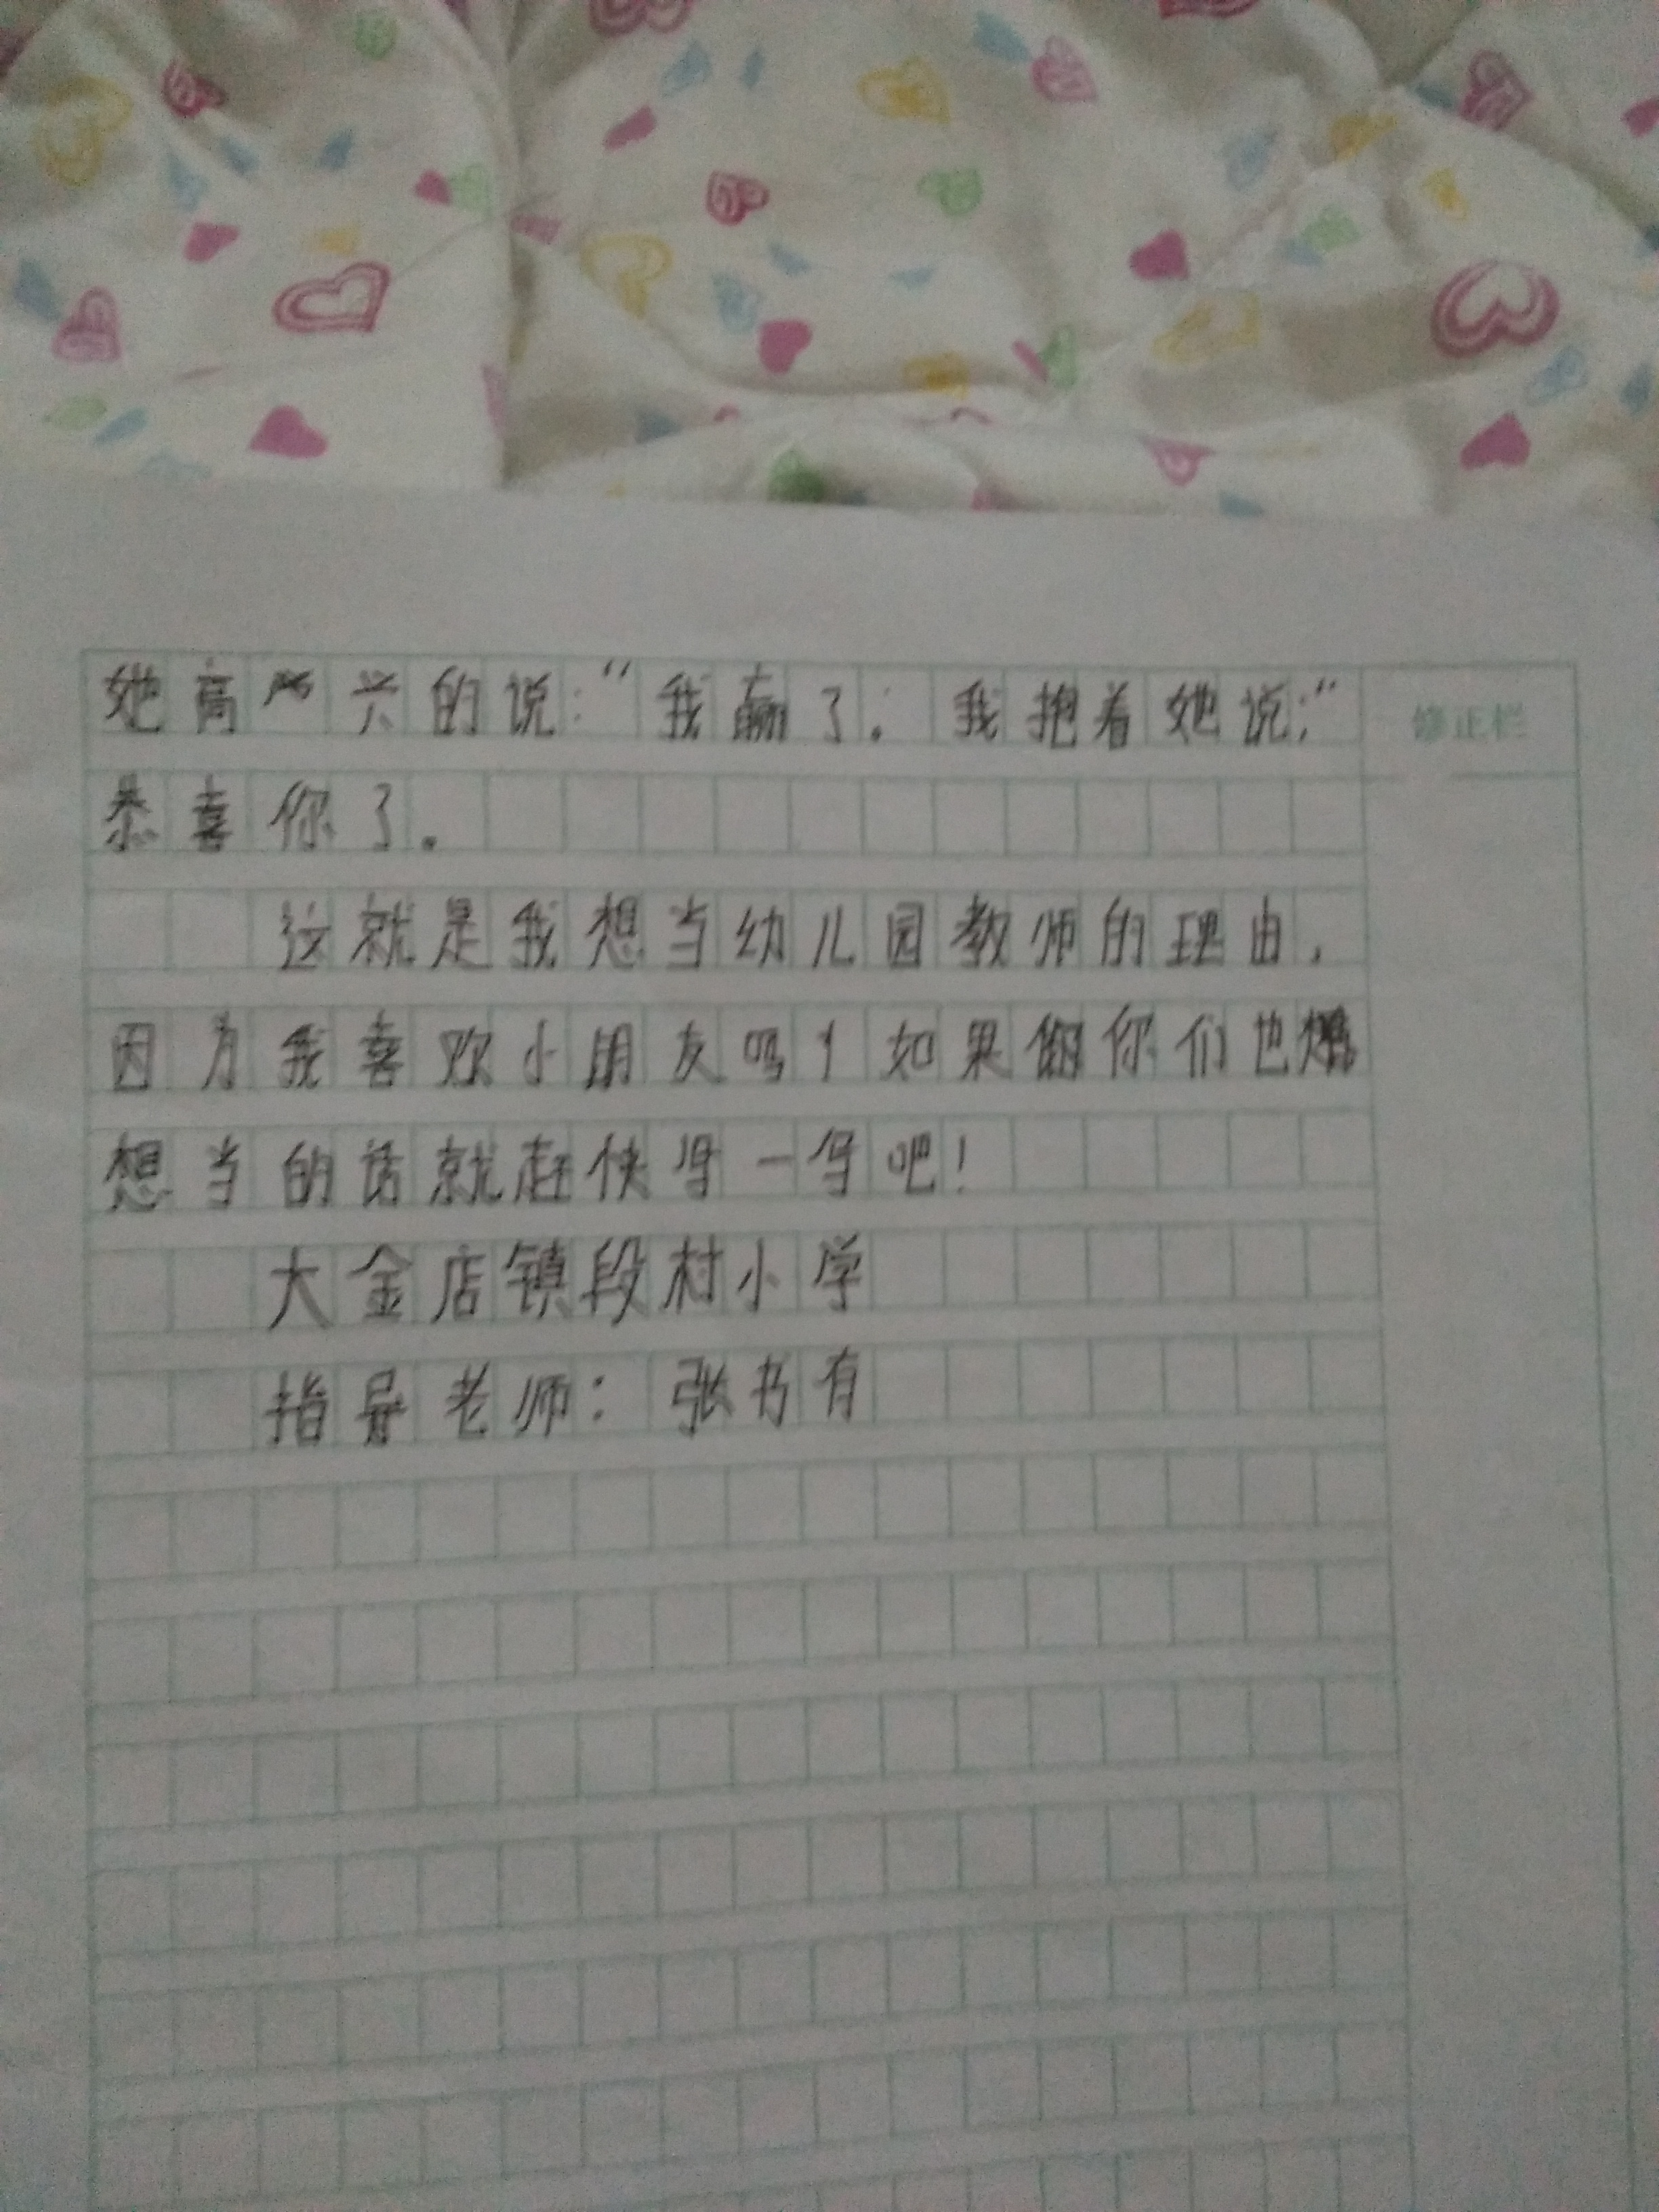 她高兴的说:“我赢了.我抱着她说:“
修正栏
恭喜你了.
这就是我想当幼儿园教师的理由,
因为我喜欢小朋友吗!如果你们也
想当的话就赶快学一学吧!
大金店镇段村小学
指导老师:张书有